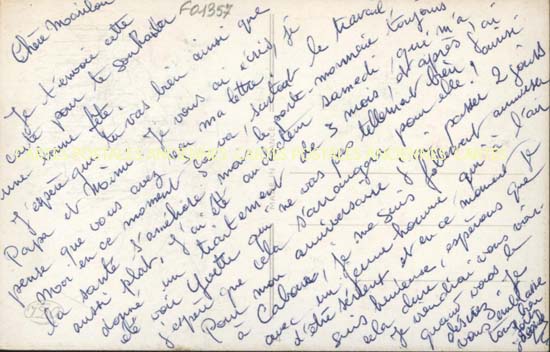 FO1357
Chère
Je t'envoie cette
carte pour te souhaiter
une bonne fête
J'espère que tu vas bien ainsi que
Papa et Mémé. Je vous ai écris, je
pense que vous avez ma lettre
Moi en ce moment ça va, surtout le travail,
la santé s'améliore mais le porte-monnaie toujours
aussi plat, j'ai été au docteur samedi, qui m'a
donné un traitement de 3 mois, et après j'ai
été voir Yvette qui ne va pas tellement bien aussi
j'espère que cela s'arrangera pour elle!
Pour mon anniversaire j'ai passer 2 jours
à Cabourg, je me suis
avec un jeune homme qui a l'air
d'être sérieux et en ce moment je
suis heureuse, espérons que
cela dure,
je viendrai vous voir
quand vous le
Je
vous embrasse